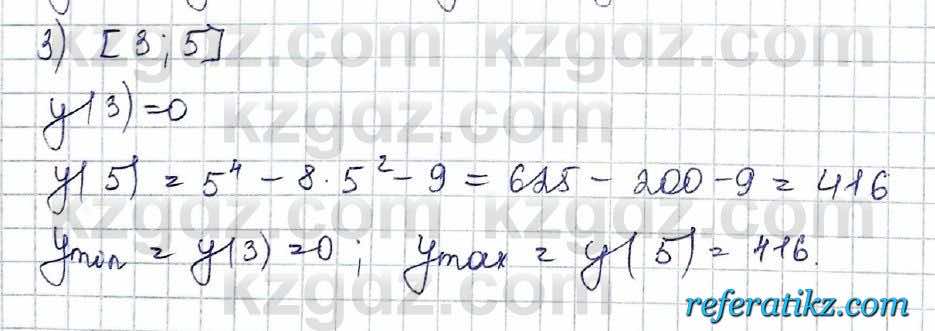 3) [3; 5]
y(3)=0
y(5) = 5⁴ - 8·5² - 9 = 625 - 200 - 9 = 416
ymin = y(3) = 0; ymax = y(5) = 416.
kzgdz.com
kzgdz.com
kzgdz.com
kzgdz.com
referatikz.com